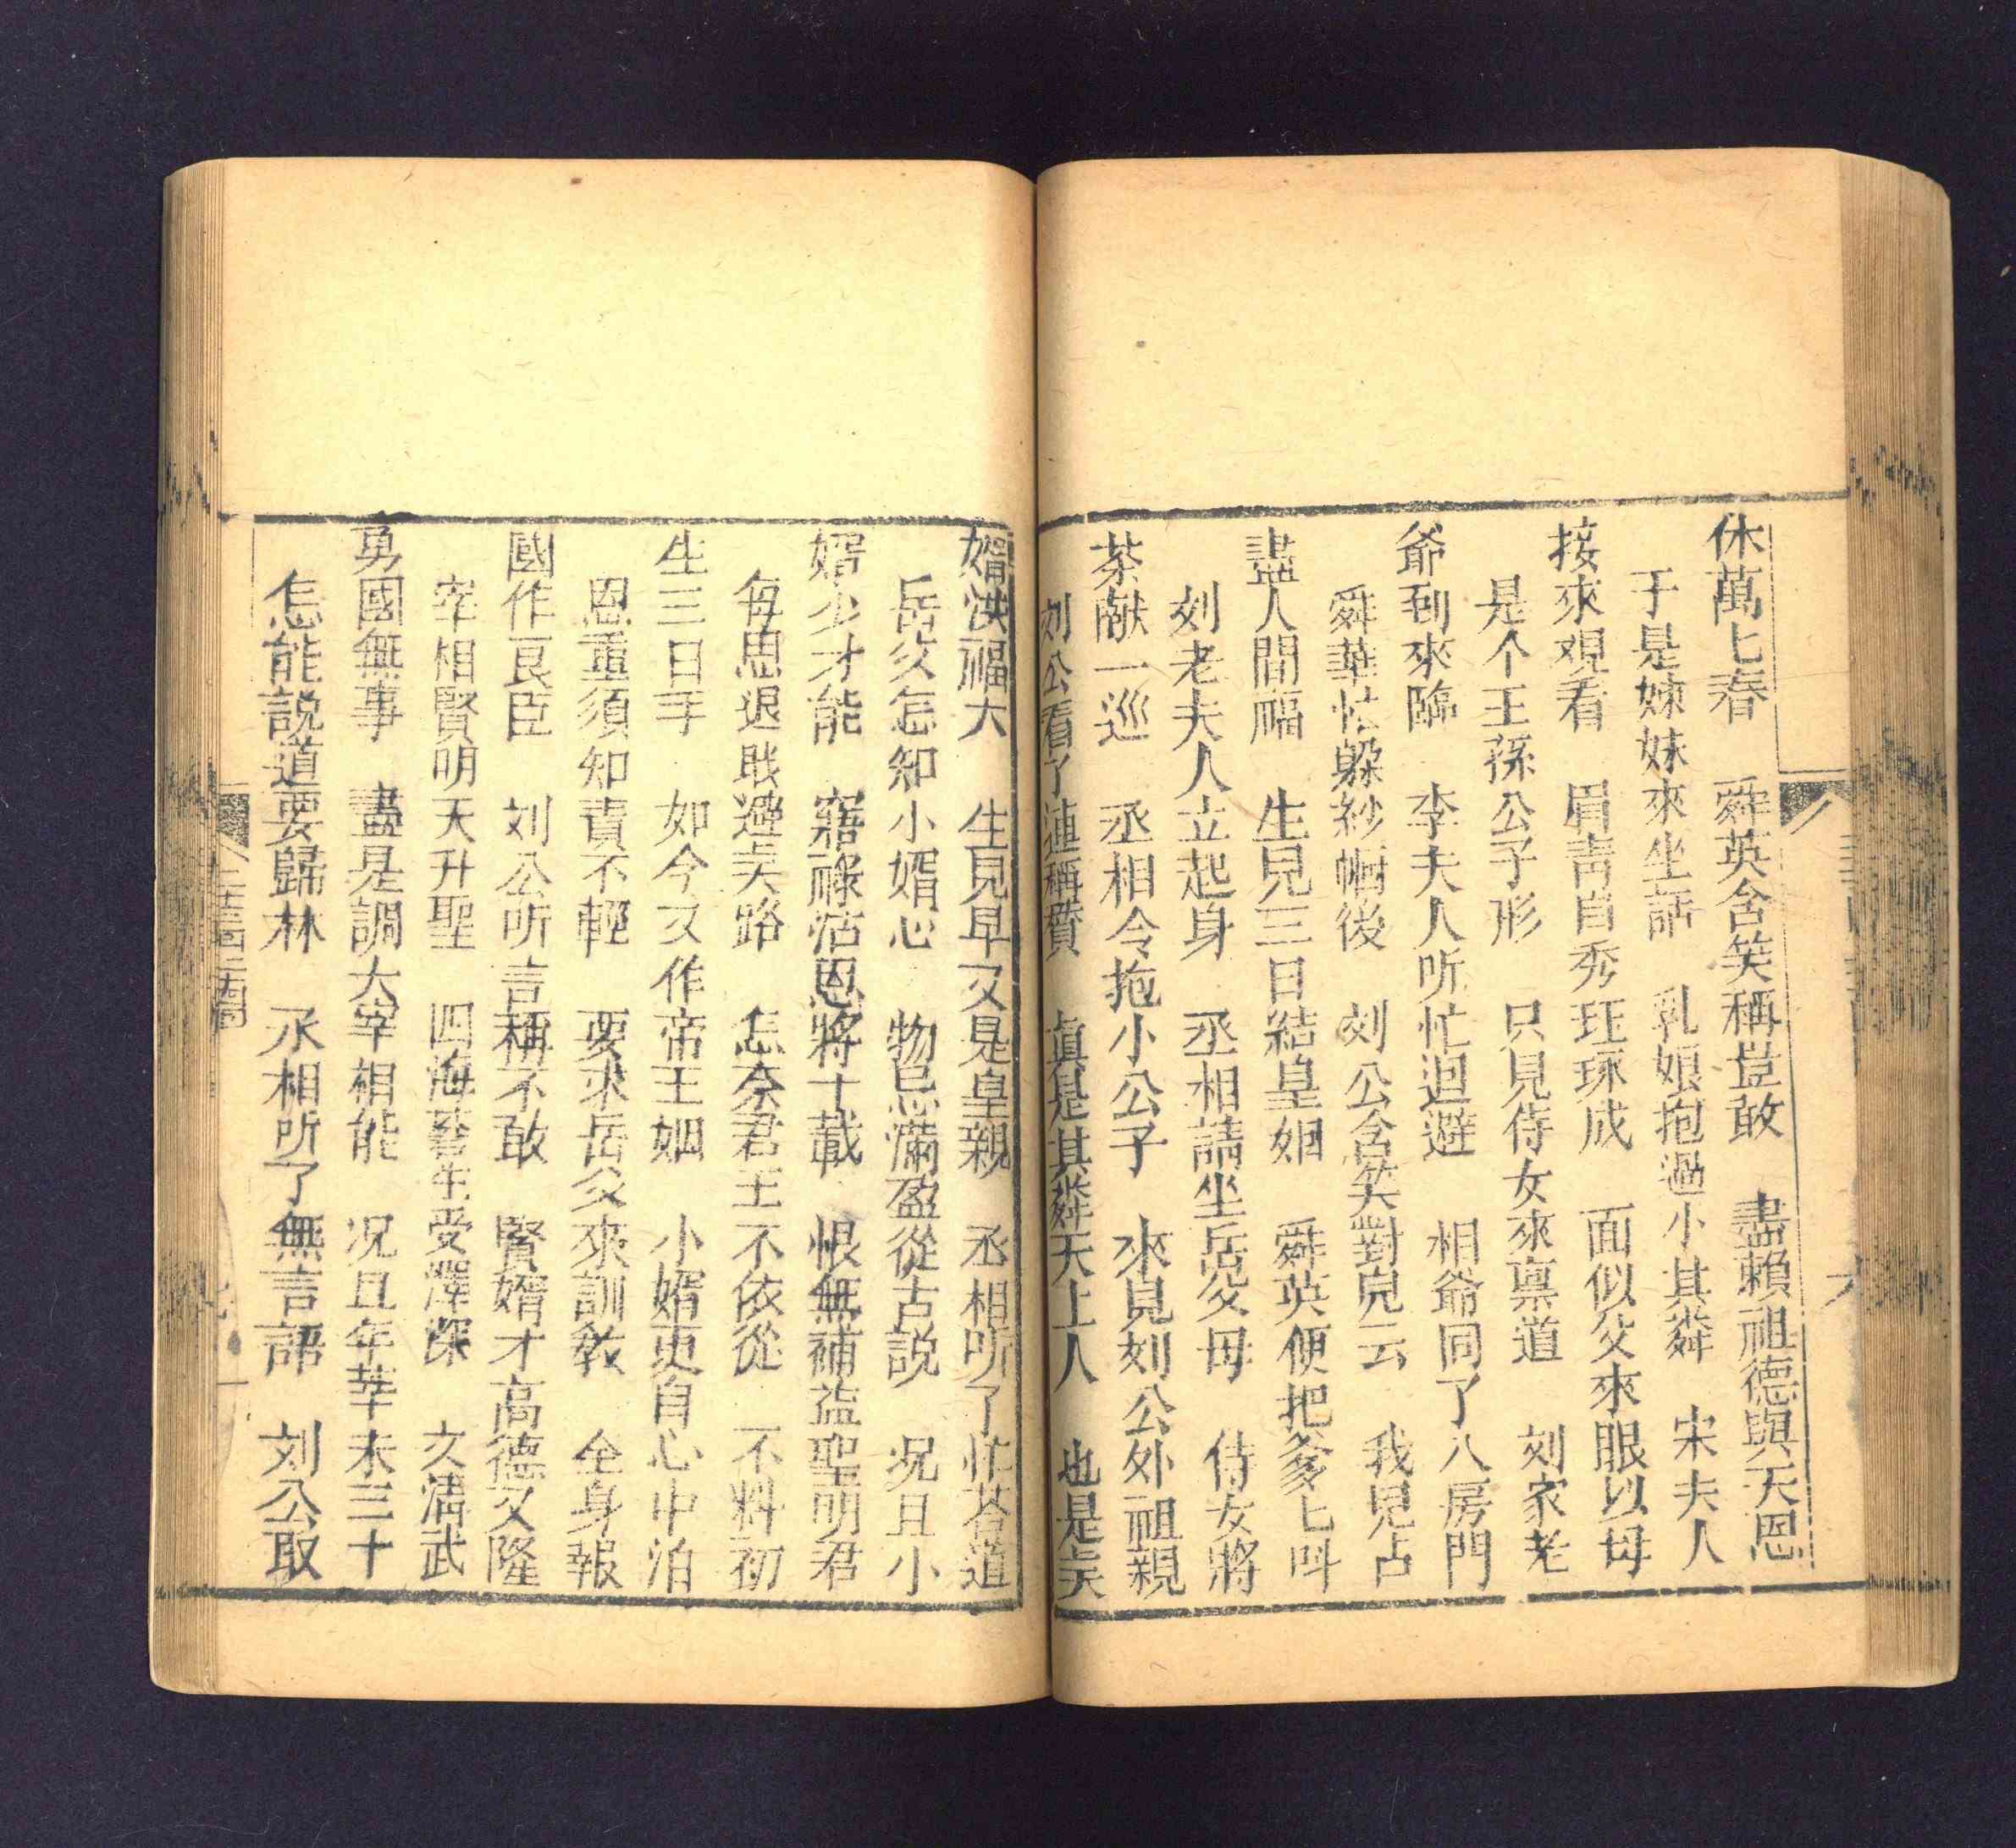 休萬匕春　舜英含笑稱豈敢　盡賴祖德與天恩
于是姊妹來坐話　乳娘抱過小其舜　宋夫人
接來观看　眉青目秀玨琢成　面似父來眼以母
是个王孫公子形　只見侍女來禀道　刘家老
爺到來臨　李夫人听忙迴避　相爺同了入房門
舜華忙躱紗幗後　刘公含笑對皃云　我見占
盡人間福　生見三日結皇姻　舜英便把爹匕呌
刘老夫人立起身　丞相請坐岳父母　侍女將
茶献一巡　丞相令抱小公子　來見刘公外祖親
刘公看了連稱賛　眞是其舜天上人　也是矣
婿洪福大　生見早又是皇親　丞相听了忙荅道
岳父怎知小婿心　物忌滿盈從古説　况且小
婿少才能　竊祿沾恩將十載　恨無補益聖明君
每思退戢避矣路　怎奈君王不依從　不料初
生三日子　如今又作帝王姻　小婿更自心中泊
恩重須知責不輕　要求岳父來訓敎　全身報
國作良臣　刘公听言稱不敢　賢婿才高德又隆
宰相賢明天升聖　四海蒼生受澤深　文淸武
勇國無事　盡是調大宰相能　况且年華未三十
怎能説道要歸林　丞相听了無言語　刘公取